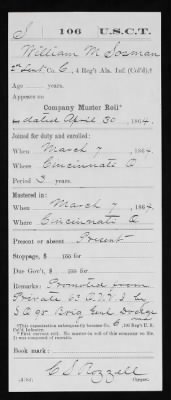 S 106 U.S.C.T.
William M Sosman
2" Lieut., Co. C, 4 Reg't Ala. Inf. (Col'd).†
Age ....... years.
Appears on
Company Muster Roll*
dated April 30, 1864.
Joined for duty and enrolled:
When March 7, 1864.
Where Cincinnati O
Period 3 years.
Mustered in:
When March 7, 1864.
Where Cincinnati O
Present or absent Present
Stoppage, $ 100 for
Due Gov't, $ 100 for
Remarks: Promoted from
Private 63 O.V.I. by
S.O. 95 Brig Genl Dodge
†This organization subsequently became Co. C, 106 Reg't U. S.
Col'd Infantry.
*First current roll. No muster-in roll of this company on file.
Book mark:
C S Rozzell
Copyist.